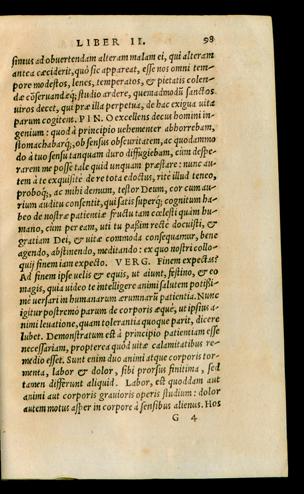 LIBER II. 98
simus ad obuertendam alteram malam ei, qui alteram
antea cæciderit, quò sic appareat, esse nos omni tem-
pore modestos, lenes, temperatos, & pietatis colen-
dæ cōseruandæq́; studio ardere, quemadmodū sanctos
uiros decet, qui præ illa perpetua, de hac exigua uita
parum cogitent. PIN. O excellens decus homini in-
genium: quod à principio uehementer abhorrebam,
stomachabarq́;, ob sensus obscuritatem, ac quodammo
do à tuo sensu tanquam duro diffugiebam, cùm despe-
rarem me posse tale quid unquam præstare: nunc au-
tem à te exquisitè de re tota edoctus, ritè illud teneo,
proboq́;, ac mihi demum, testor Deum, cor cum au-
rium auditu consentit, qui satis superq́; cognitum ha-
beo de nostræ patientiæ fructu tam cœlesti quàm hu-
mano, cùm per eam, uti tu paßim rectè docuisti, &
gratiam Dei, & uitæ commoda consequamur, bene
agendo, abstinendo, meditando: ex quo nostri collo-
quij finem iam expecto. VERG. Finem expectas?
Ad finem ipse uelis & equis, ut aiunt, festino, & eo
magis, quia uideo te intelligere animi salutem potißi-
mè uersari in humanarum ærumnarū patientia. Nunc
igitur postremò parum de corporis æquè, ut ipsius a-
nimi leuatione, quam tolerantia quoque parit, dicere
lubet. Demonstratum est à principio patientiam esse
necessariam, propterea quòd uitæ calamitatibus re-
medio esset. Sunt enim duo animi atque corporis tor-
menta, labor & dolor, sibi prorsus finitima, sed
tamen differunt aliquid. Labor, est quoddam aut
animi aut corporis grauioris operis studium: dolor
autem motus asper in corpore à sensibus alienus. Hos
G 4